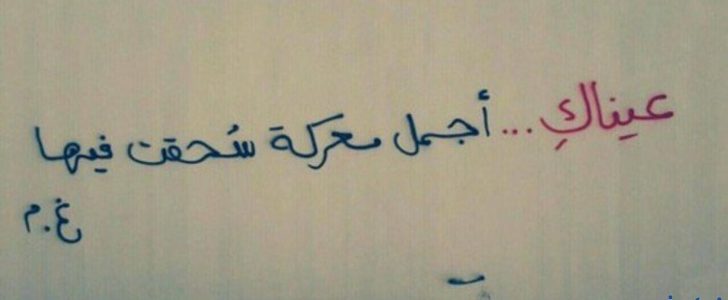 عيناكِ... أجمل معركة سُحقت فيها
غ.م